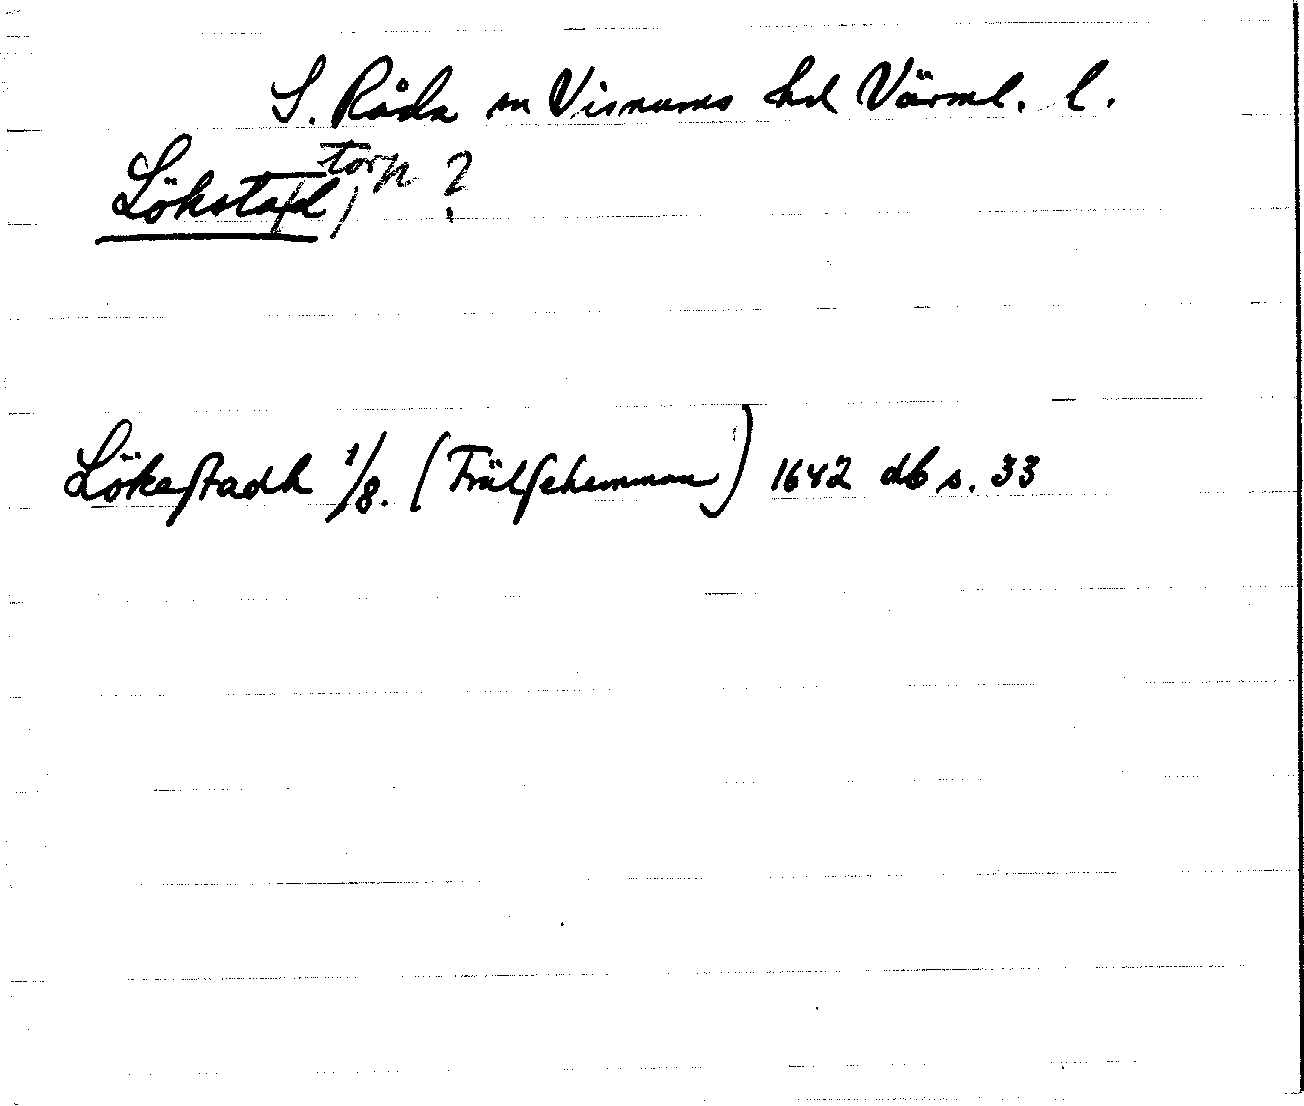 S. Råda sn Visnums hd Värml. l.
Löksta(d) torp ?
Lökestadh 1/8. (Frälsehemman) 1642 db s. 33